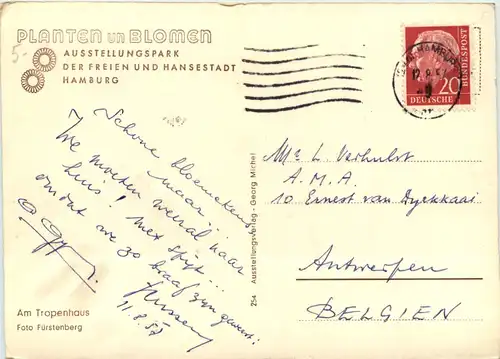 PLANTEN un BLOMEN
AUSSTELLUNGSPARK
DER FREIEN UND HANSESTADT
HAMBURG
5-
Schone bloemekens
maar...
We moeten weeral naar
huis! Met spijt...
omdat we zo braaf zijn geweest!
Kussen
11.8.57
Am Tropenhaus
Foto Fürstenberg
254 Ausstellungsverlag - Georg Michel
HAMBURG
DEUTSCHE
BUNDESPOST
20
Mr L. Verhulst
A.M.A.
10 Ernest van Dyckkaai
Antwerpen
BELGIEN